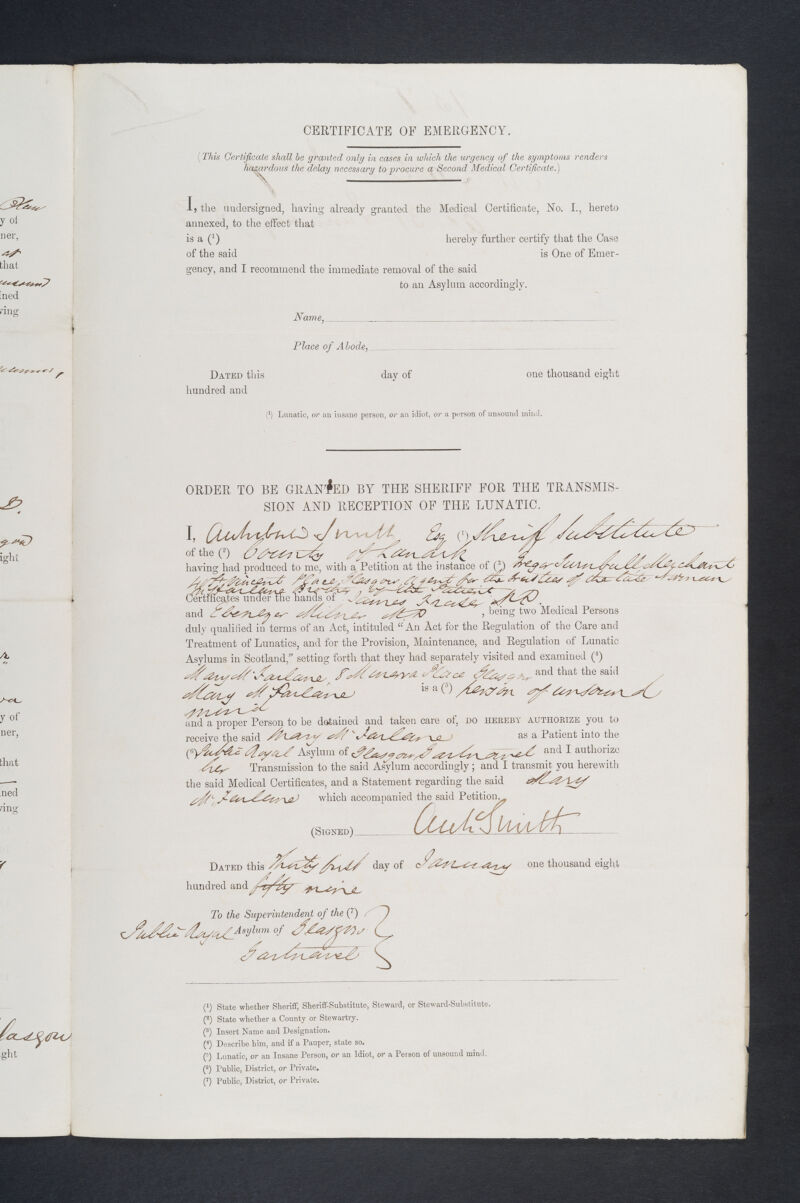 CERTIFICATE OF EMERGENCY.
(This Certificate shall be granted only in cases in which the urgency of the symptoms renders
hazardous the delay necessary to procure a Second Medical Certificate.)
I, the undersigned, having already granted the Medical Certificate, No. I., hereto
annexed, to the effect that
is a (1) hereby further certify that the Case
of the said is One of Emer-
gency, and I recommend the immediate removal of the said
to an Asylum accordingly.
Name,
Place of Abode,
DATED this day of one thousand eight
hundred and
(1) Lunatic, or an insane person, or an idiot, or a person of unsound mind.
ORDER TO BE GRANTED BY THE SHERIFF FOR THE TRANSMIS-
SION AND RECEPTION OF THE LUNATIC.
I, Archibald Smith Esq (1) Sheriff Substitute
of the (2) County of Lanark
having had produced to me, with a Petition at the instance of (3) Turnbull Merchant
Vincent Place Glasgow agent for the trustees of the late
McFarlane Brother of the Patient
Certificates under the hands of James Fraser MD
and Ebenezer Milner MD, being two Medical Persons
duly qualified in terms of an Act, intituled "An Act for the Regulation of the Care and
Treatment of Lunatics, and for the Provision, Maintenance, and Regulation of Lunatic
Asylums in Scotland," setting forth that they had separately visited and examined (4)
Mary McFarlane, 8 Minerva Place Glasgow and that the said
Mary McFarlane is a (5) person of unsound
mind
and a proper Person to be detained and taken care of, DO HEREBY AUTHORIZE you to
receive the said Mary McFarlane as a Patient into the
(6) Public Royal Asylum of Glasgow Gartnavel and I authorize
her Transmission to the said Asylum accordingly; and I transmit you herewith
the said Medical Certificates, and a Statement regarding the said Mary
McFarlane which accompanied the said Petition.
(SIGNED) Arch Smith
DATED this Thirty first day of January one thousand eight
hundred and fifty nine
To the Superintendent of the (7)
Public Royal Asylum of Glasgow
Gartnavel
(1) State whether Sheriff, Sheriff-Substitute, Steward, or Steward-Substitute.
(2) State whether a County or Stewartry.
(3) Insert Name and Designation.
(4) Describe him, and if a Pauper, state so.
(5) Lunatic, or an Insane Person, or an Idiot, or a Person of unsound mind.
(6) Public, District, or Private.
(7) Public, District, or Private.
y of
ner,
that
ined
ving
ight
y of
ner,
that
ned
ving
Glasgow
ght